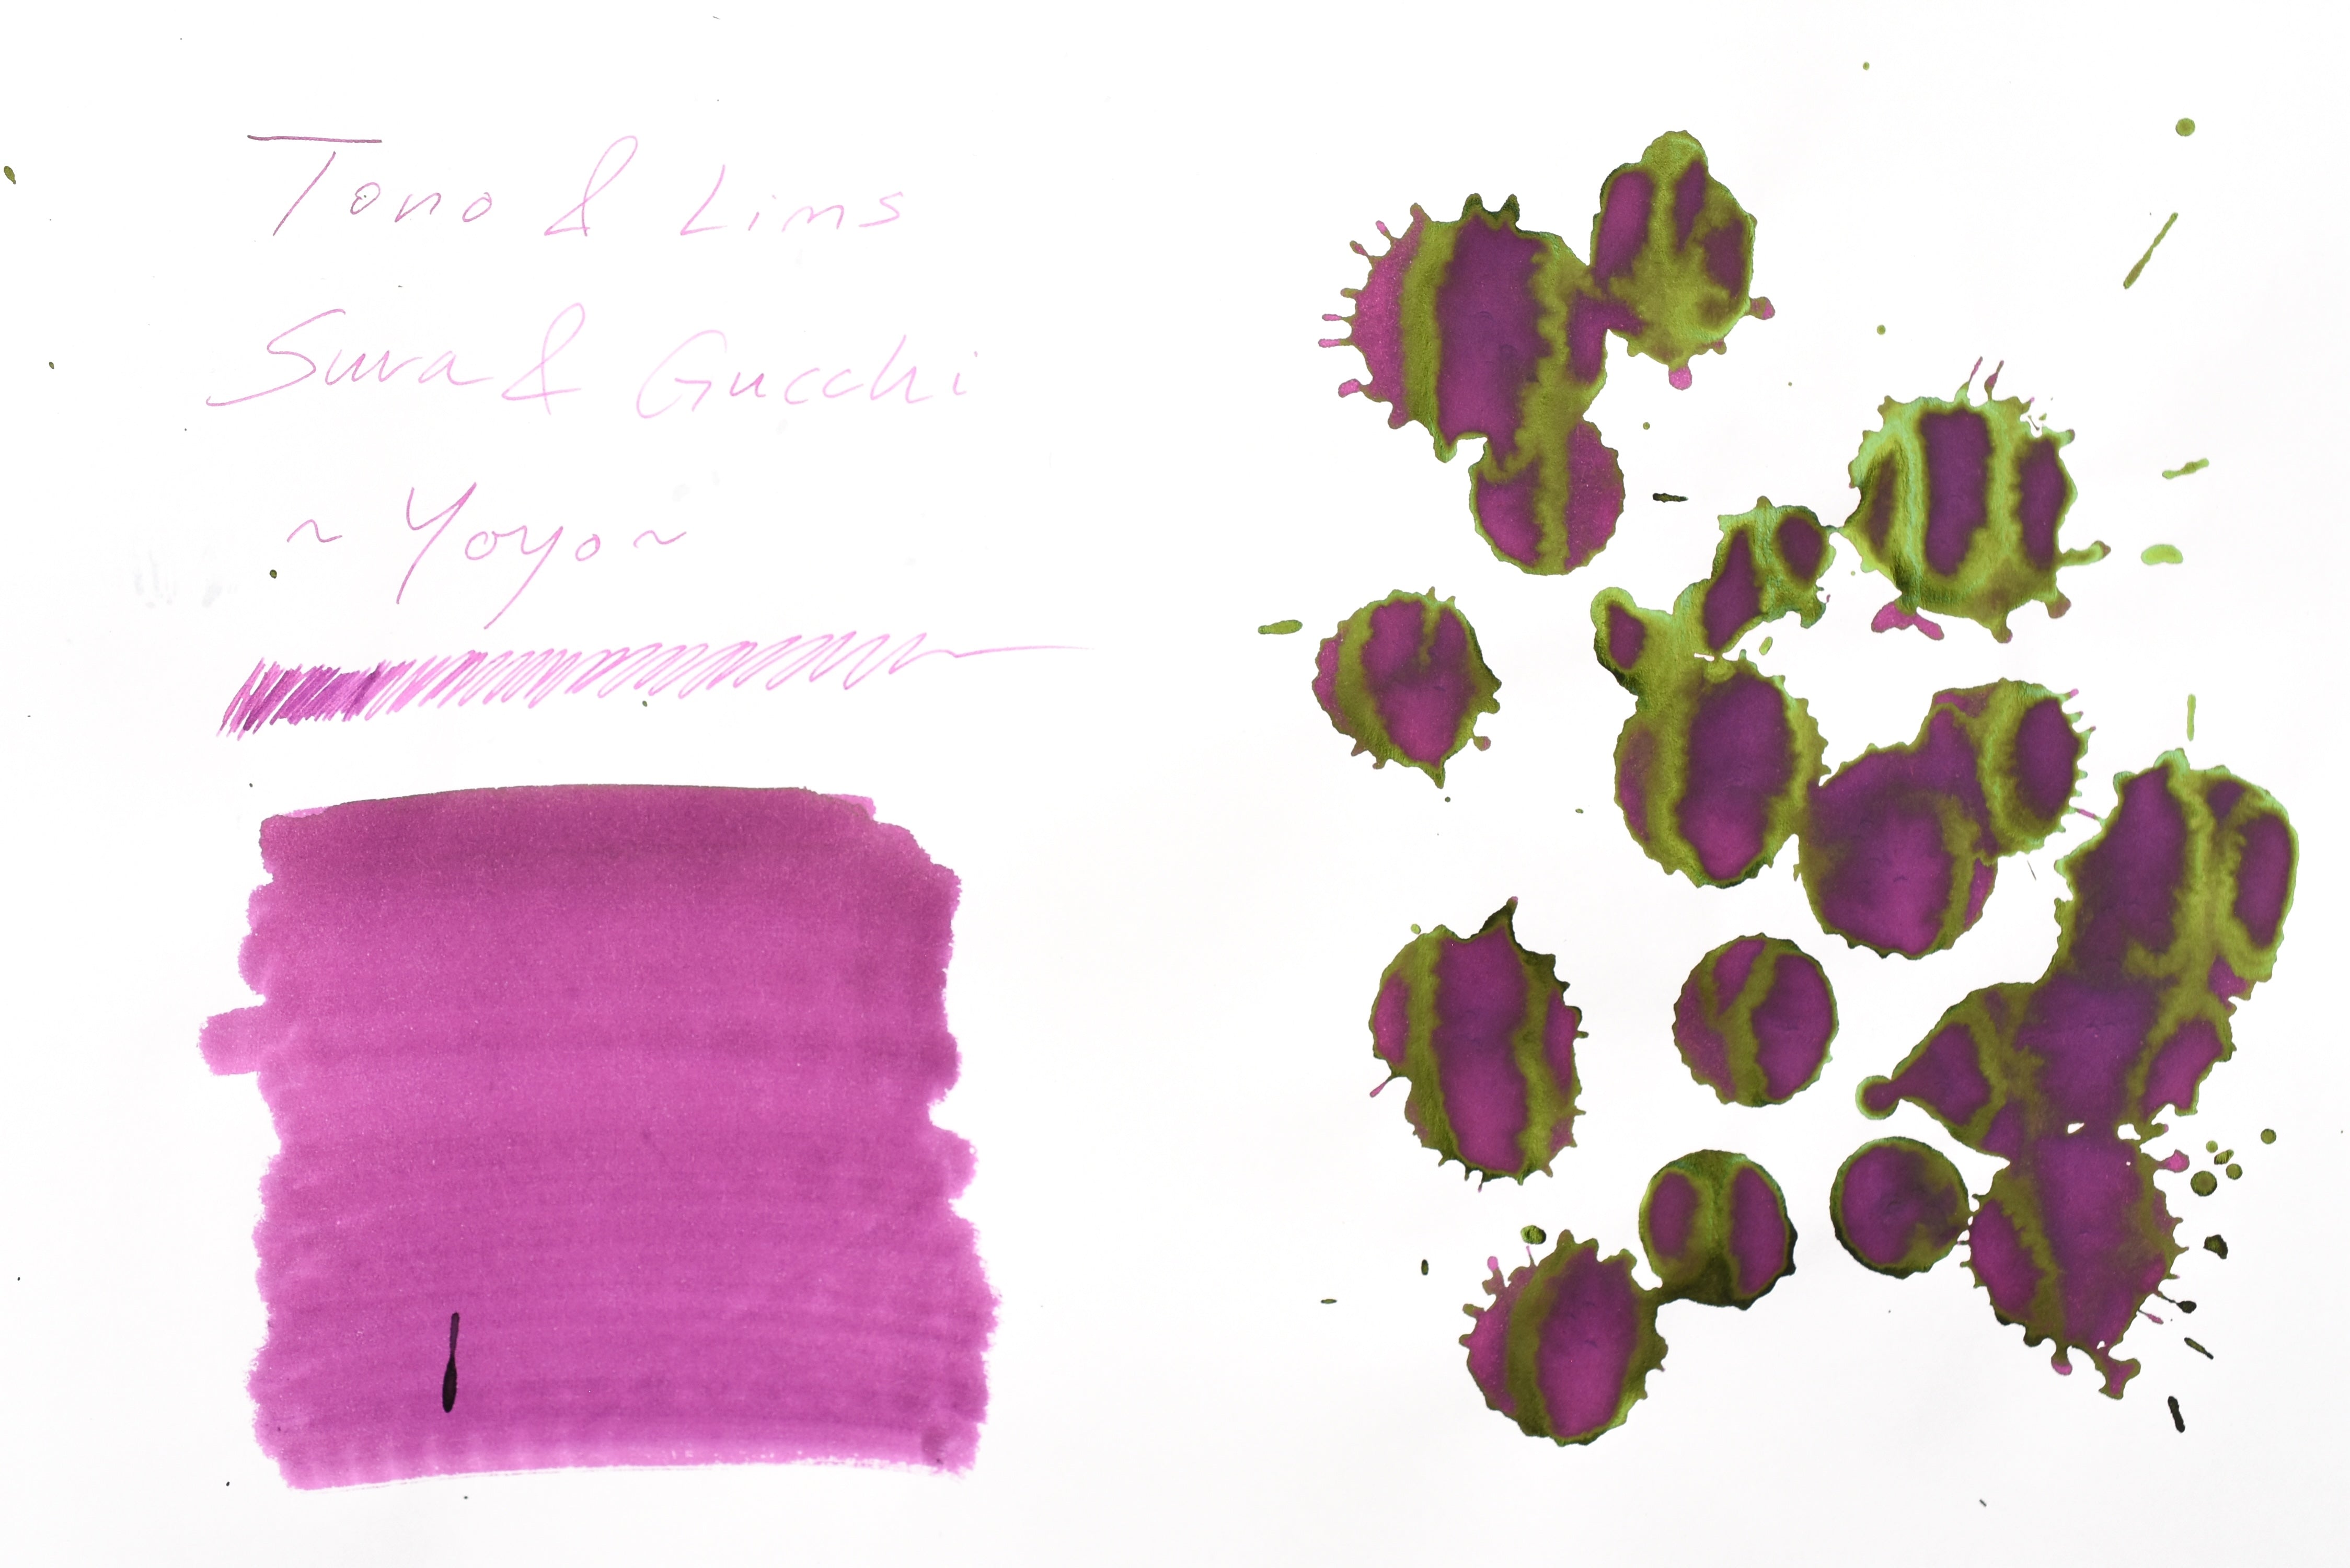 Tono & Lims
Sura & Gucchi
~ Yoyo ~